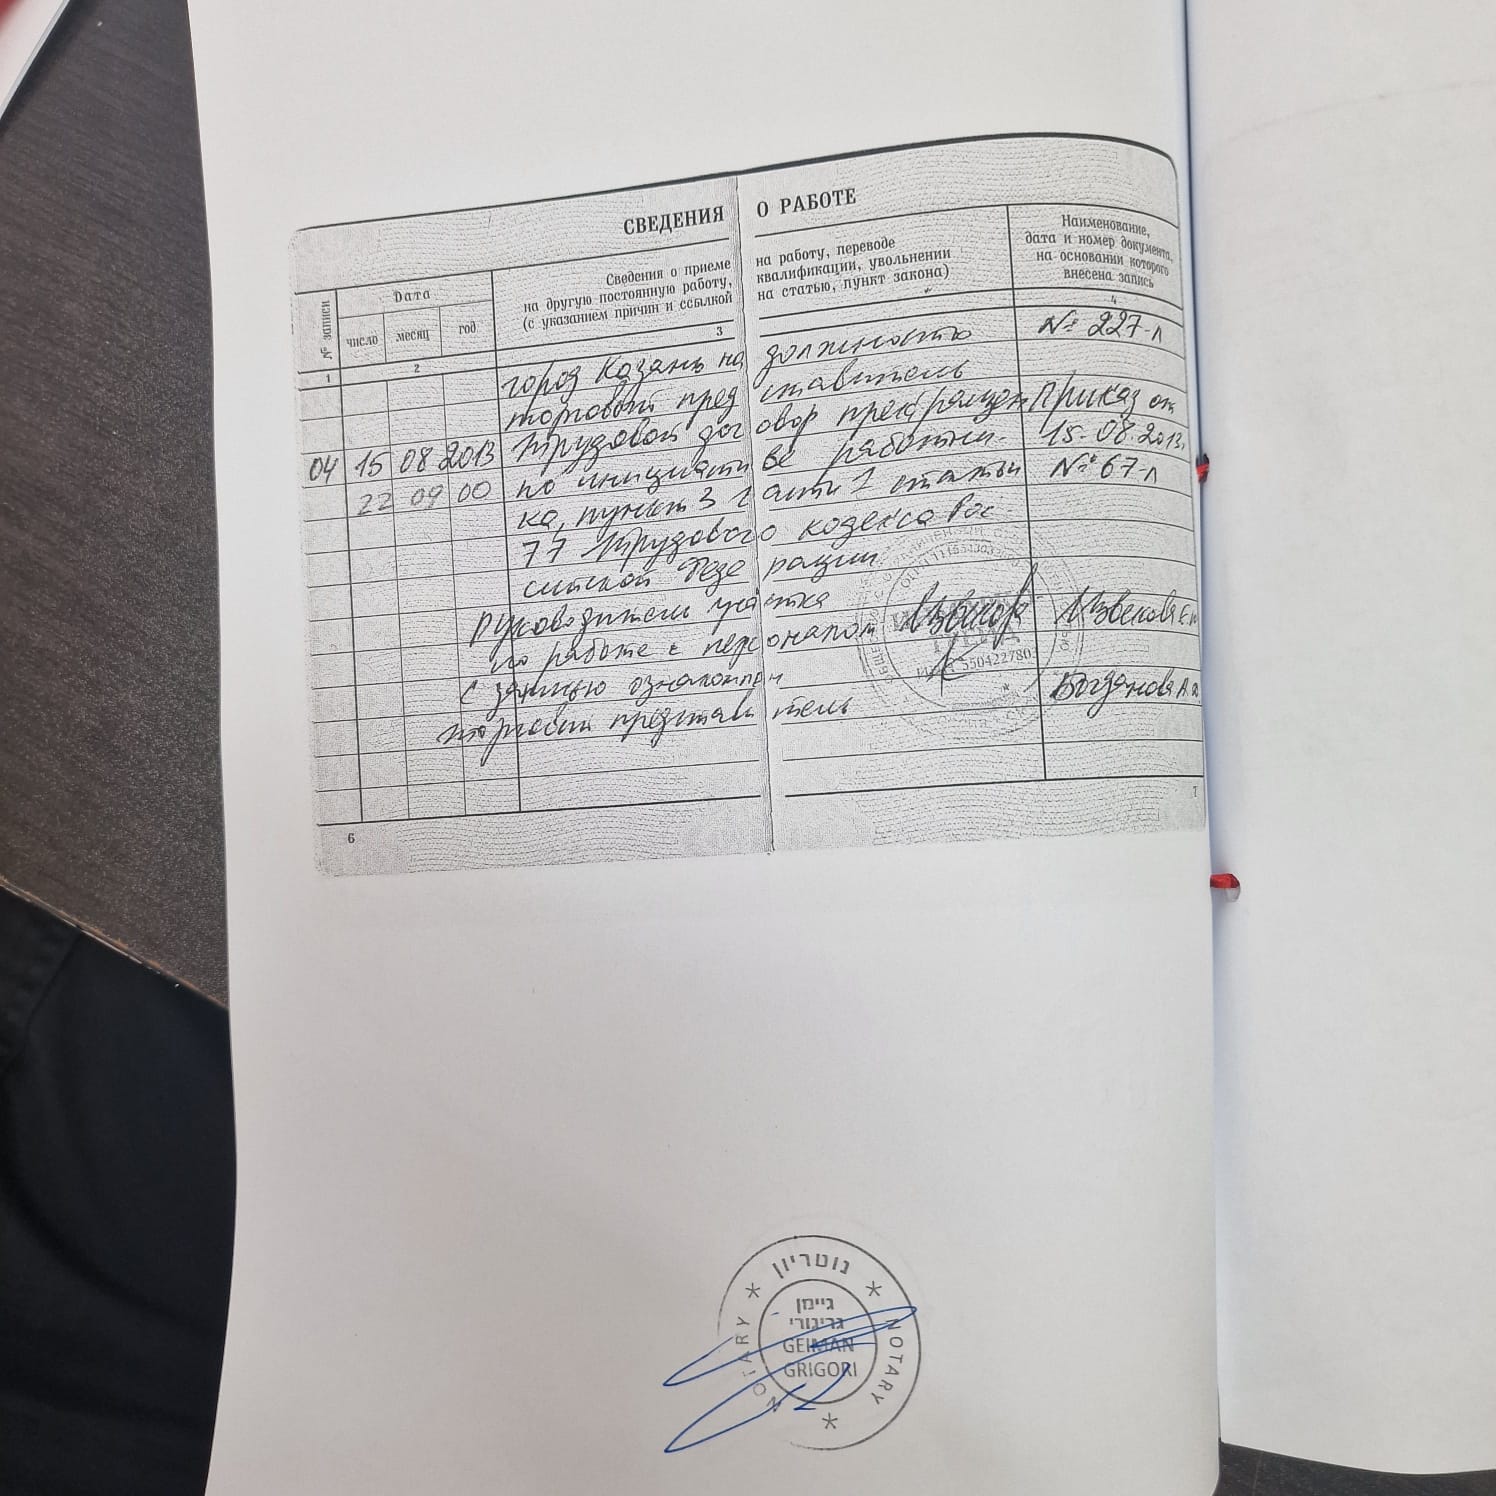 СВЕДЕНИЯ О РАБОТЕ
№ записи
Дата
число
месяц
год
Сведения о приеме на работу, переводе
на другую постоянную работу, квалификации, увольнении
(с указанием причин и ссылкой на статью, пункт закона)
Наименование,
дата и номер документа,
на основании которого
внесена запись
1
2
3
4
город Казань на должность № 227-л
торговый представитель
04 15 08 2013 Трудовой договор прекращен Приказ от
22 09 00 по инициативе работни- 15.08.2013г
ка, пункт 3 части 1 статьи № 67-л
77 Трудового кодекса Рос-
сийской Федерации
Руководитель участка
по работе с персоналом Извекова Е.
С записью ознакомлен
торговый представитель Богданова А.
6
7
נוטריון
NOTARY
גיימן
גריגורי
GEIMAN
GRIGORI
NOTARY